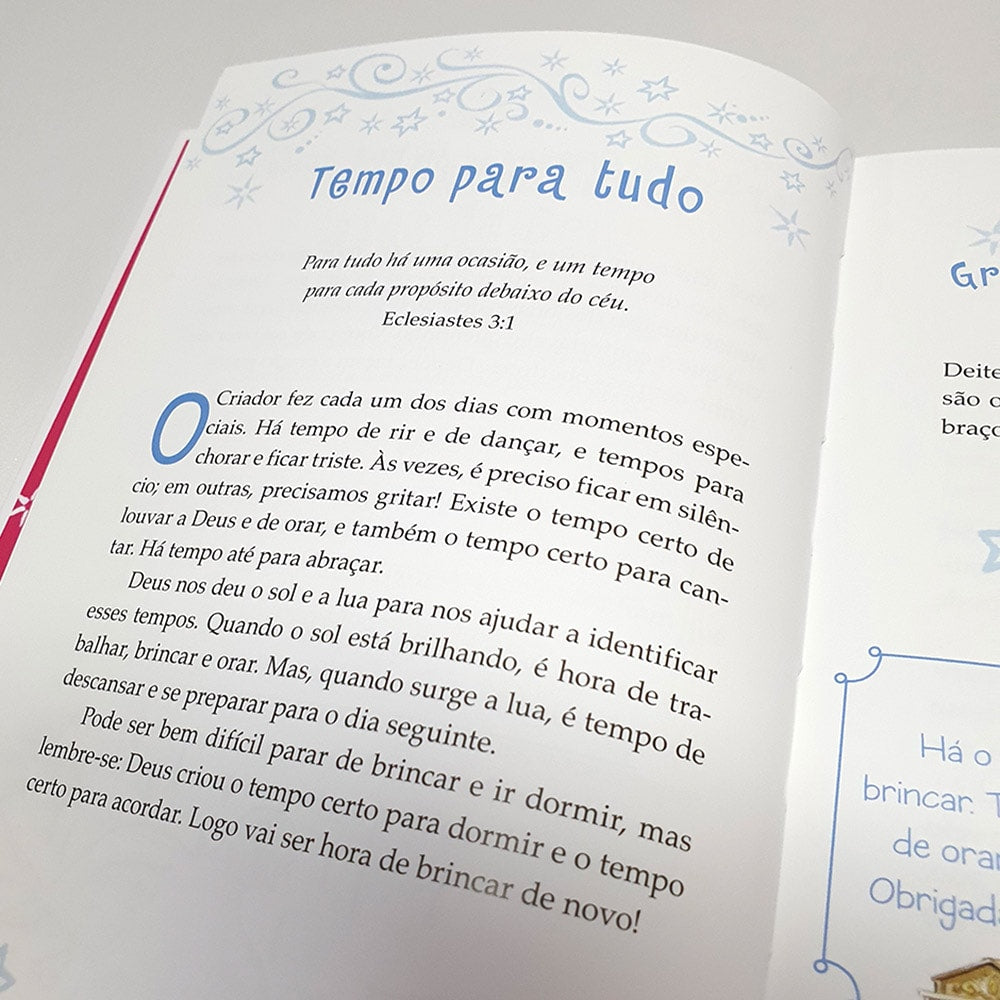 Tempo para tudo
Para tudo há uma ocasião, e um tempo
para cada propósito debaixo do céu.
Eclesiastes 3:1
O Criador fez cada um dos dias com momentos espe-
ciais. Há tempo de rir e de dançar, e tempos para
chorar e ficar triste. Às vezes, é preciso ficar em silên-
cio; em outras, precisamos gritar! Existe o tempo certo de
louvar a Deus e de orar, e também o tempo certo para can-
tar. Há tempo até para abraçar.
Deus nos deu o sol e a lua para nos ajudar a identificar
esses tempos. Quando o sol está brilhando, é hora de tra-
balhar, brincar e orar. Mas, quando surge a lua, é tempo de
descansar e se preparar para o dia seguinte.
Pode ser bem difícil parar de brincar e ir dormir, mas
lembre-se: Deus criou o tempo certo para dormir e o tempo
certo para acordar. Logo vai ser hora de brincar de novo!
Há o
brincar.
de